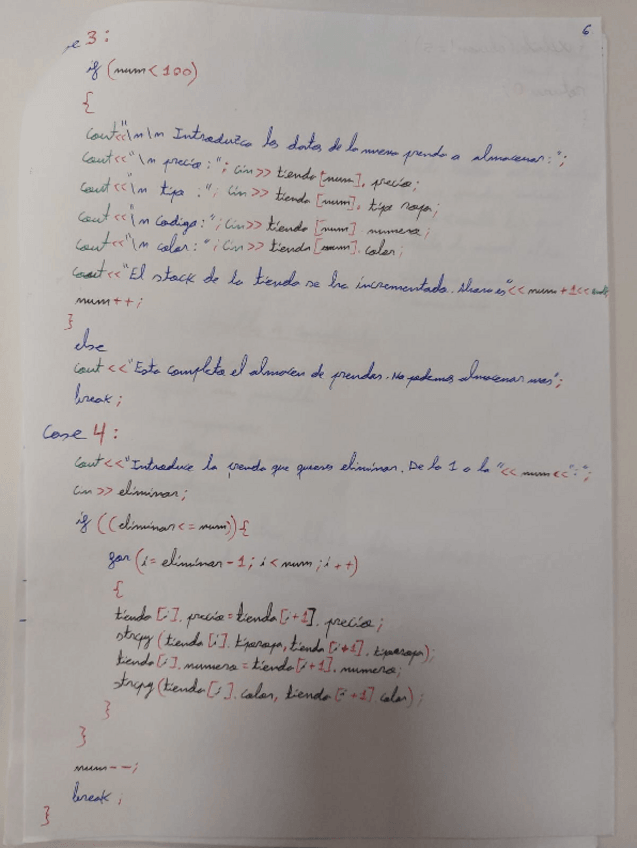 6
se 3:
if (num<100)
{
cout<<"\n\n Introduzca los datos de la nueva prenda a almacenar:";
cout<<"\n precio:"; cin>> tienda [num]. precio;
cout<<"\n tipo :"; cin>> tienda [num]. tipo ropa;
cout<<"\n codigo:"; cin>> tienda [num] numero;
cout<<"\n color: "; cin>> tienda [num]. color;
cout<<"El stock de la tienda se ha incrementado. Ahora es"<< num+1<< endl;
num++;
}
else
cout<<"Esta completo el almacen de prendas. No podemos almacenar mas";
break;
Case 4:
cout<<"Introduce la prenda que quieres eliminar. De la 1 a la "<< num<<":";
cin >> eliminar;
if ((eliminar<=num)){
for (i= eliminar-1; i<num; i++)
{
tienda [i]. precio=tienda [i+1]. precio;
strcpy (tienda [i]. tiporopa, tienda [i+1]. tiporopa);
tienda [i]. numero=tienda [i+1]. numero;
strcpy (tienda [i]. color, tienda [i+1] color);
}
}
num--;
break;
}